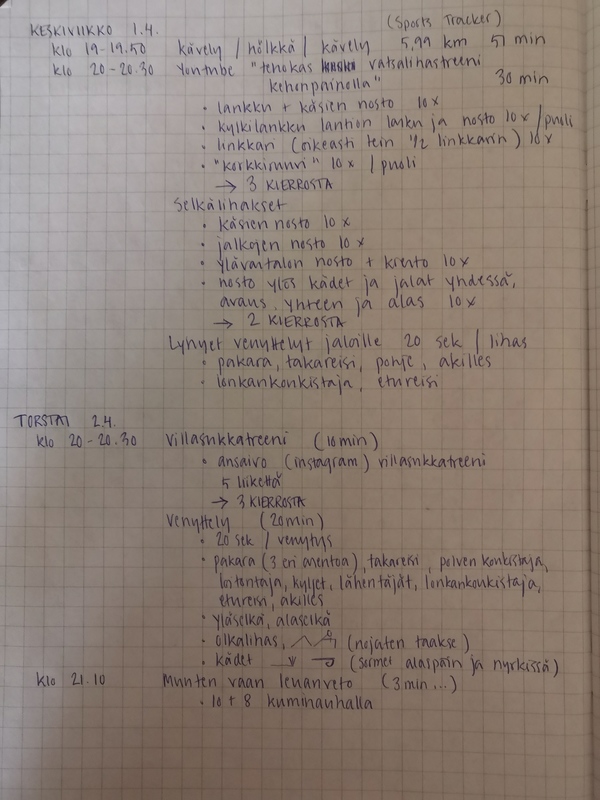 KESKIVIIKKO 1.4. (Sports Tracker)
klo 19-19.50 kävely / hölkkä / kävely 5,99 km 51 min
klo 20-20.30 Youtube "tehokas vatsalihastreeni
kehonpainolla" 30 min
• lankku + käsien nosto 10x
• kylkilankku lantion lasku ja nosto 10x / puoli
• linkkari (oikeasti tein 1/2 linkkarin) 10x
• "korkkiruuvi" 10x / puoli
→ 3 KIERROSTA
Selkälihakset
• käsien nosto 10x
• jalkojen nosto 10x
• ylävartalon nosto + kierto 10x
• nosto ylös kädet ja jalat yhdessä,
avaus, yhteen ja alas 10x
→ 2 KIERROSTA
Lyhyet venyttelyt jaloille 20 sek / lihas
• pakara, takareisi, pohje, akilles
• lonkankoukistaja, etureisi
TORSTAI 2.4.
klo 20-20.30 Villasukkatreeni (10min)
• ansaivo (instagram) villasukkatreeni
5 liikettä
→ 3 KIERROSTA
Venyttely (20min)
• 20 sek / venytys
• pakara (3 eri asentoa), takareisi, polven koukistaja,
loitontaja, kyljet, lähentäjät, lonkankoukistaja,
etureisi, akilles
• yläselkä, alaselkä
• olkalihas, (nojaten taakse)
• kädet (sormet alaspäin ja nyrkissä)
klo 21.10 Muuten vaan leuanveto (3 min...)
• 10 + 8 kuminauhalla